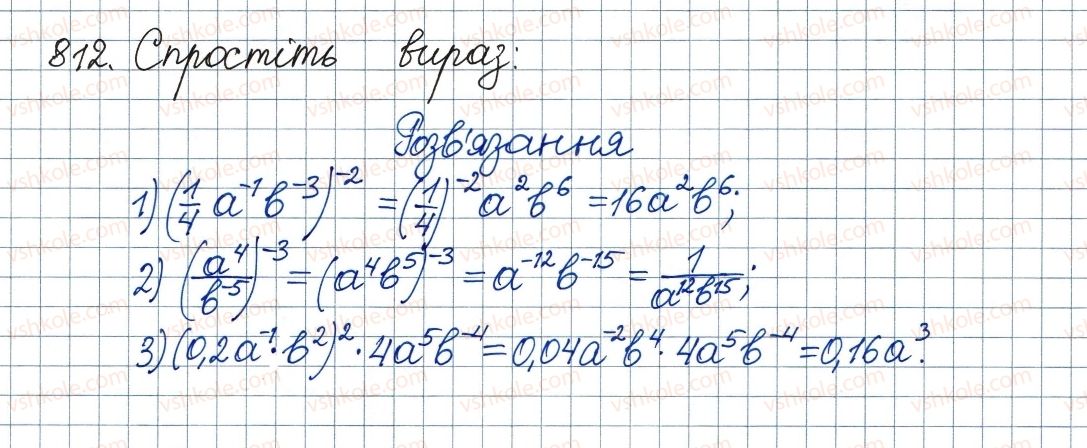 812. Спростіть вираз:
Розв'язання
1) (1/4 a⁻¹b⁻³)⁻² = (1/4)⁻² a²b⁶ = 16a²b⁶;
2) (a⁴/b⁻⁵)⁻³ = (a⁴b⁵)⁻³ = a⁻¹²b⁻¹⁵ = 1/a¹²b¹⁵;
3) (0,2a⁻¹·b²)²·4a⁵b⁻⁴ = 0,04a⁻²b⁴·4a⁵b⁻⁴ = 0,16a³.